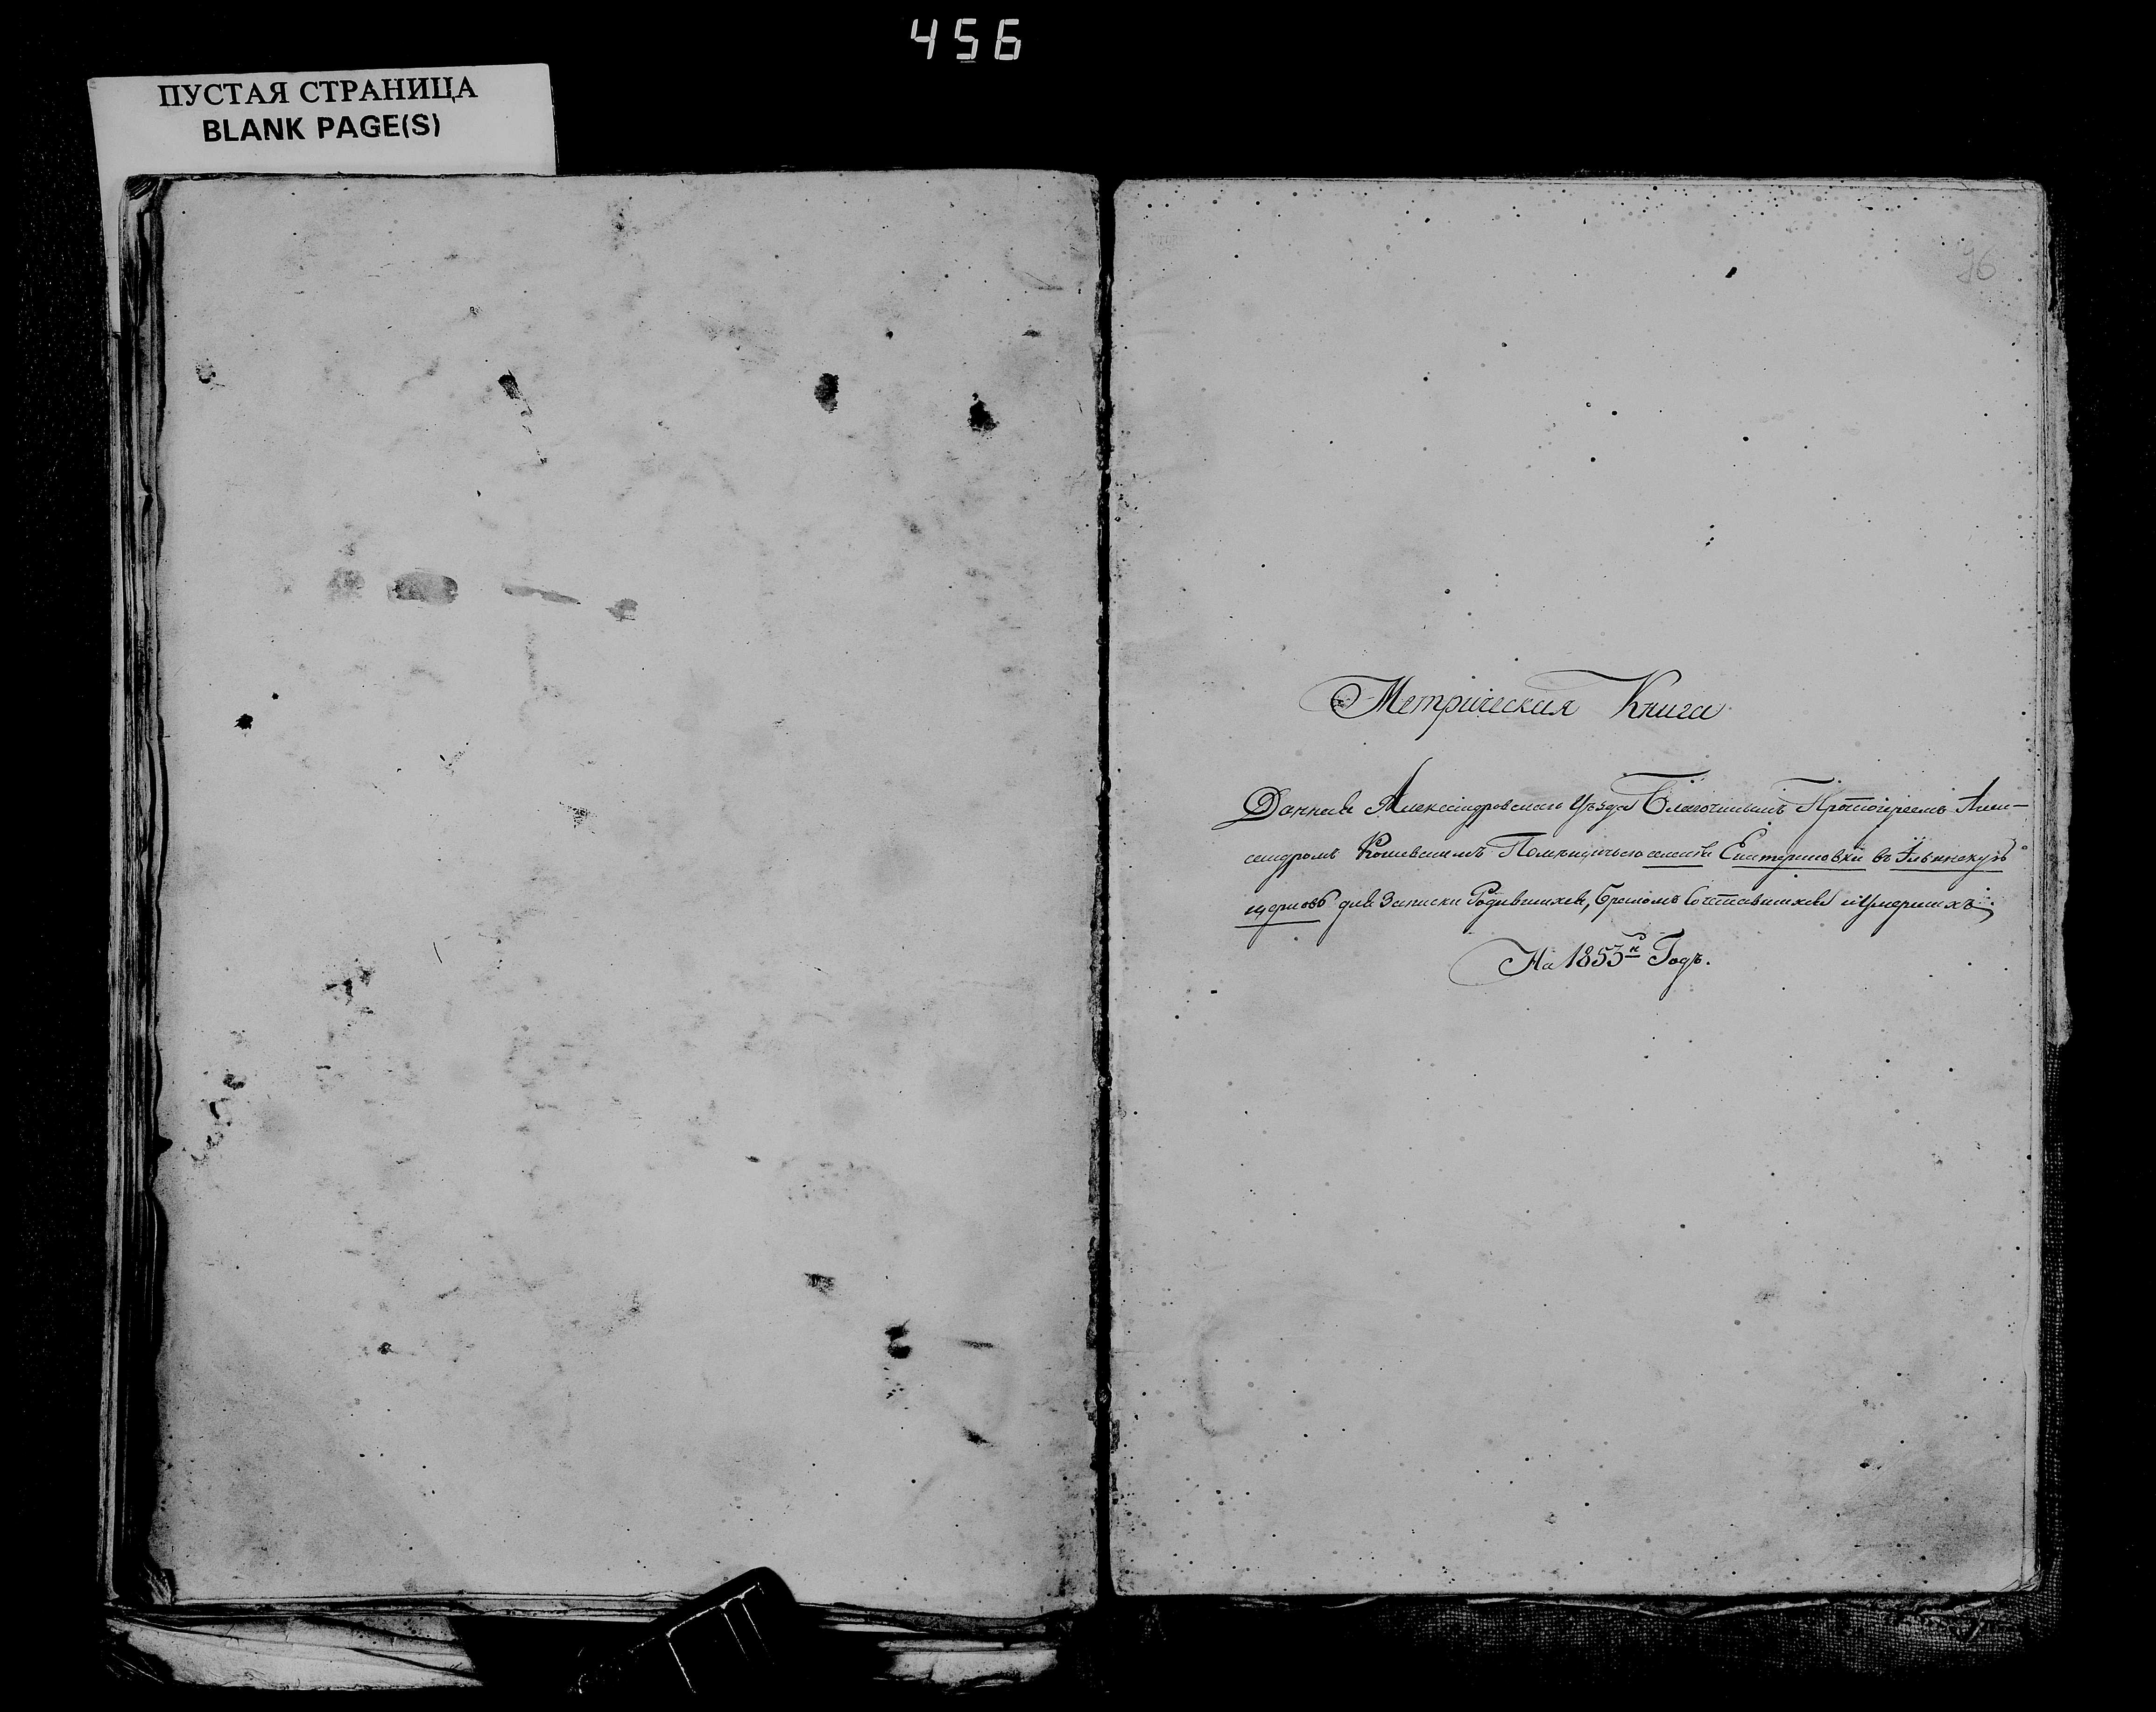 456
ПУСТАЯ СТРАНИЦА
BLANK PAGE(S)
76
Метрическая Книга
Данная Александровскаго Уѣзда Благочиннымъ Протоіереемъ Алек-
сандромъ Помѣщичьего селенія Екатериновки въ Ильинскую
церковь для Записки Родившихся, Бракомъ Сочетавшихся и Умершихъ
На 1853й Годъ.